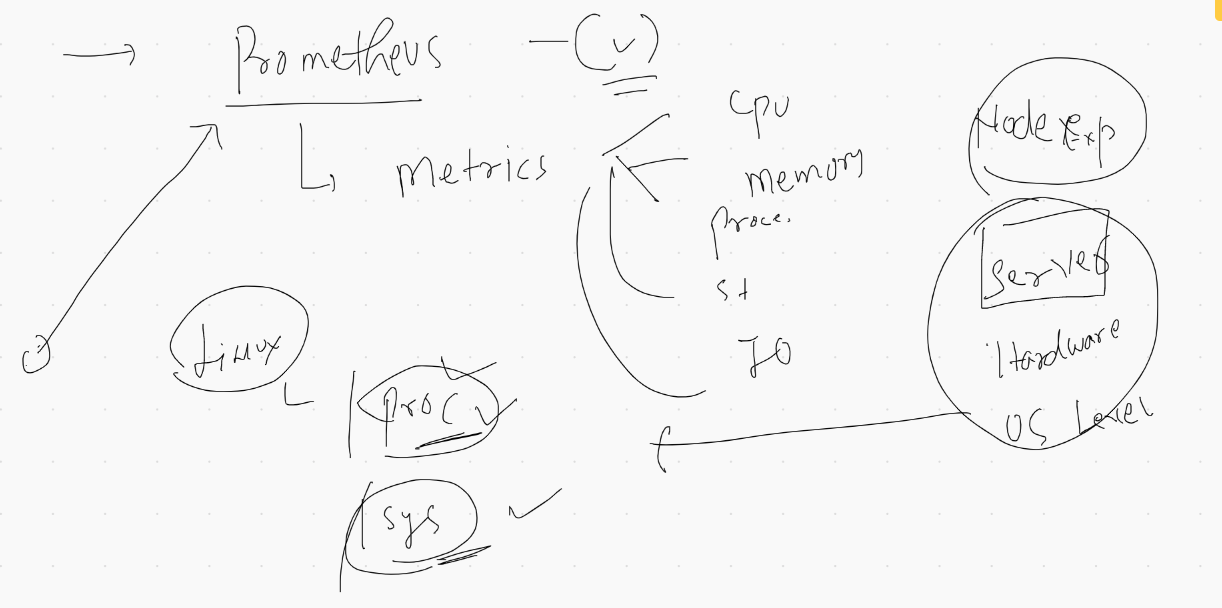 Prometheus
(v)
metrics
CPU
memory
proce.
st
IO
Node Exp
Server
Hardware
OS Level
Linux
proc
sys